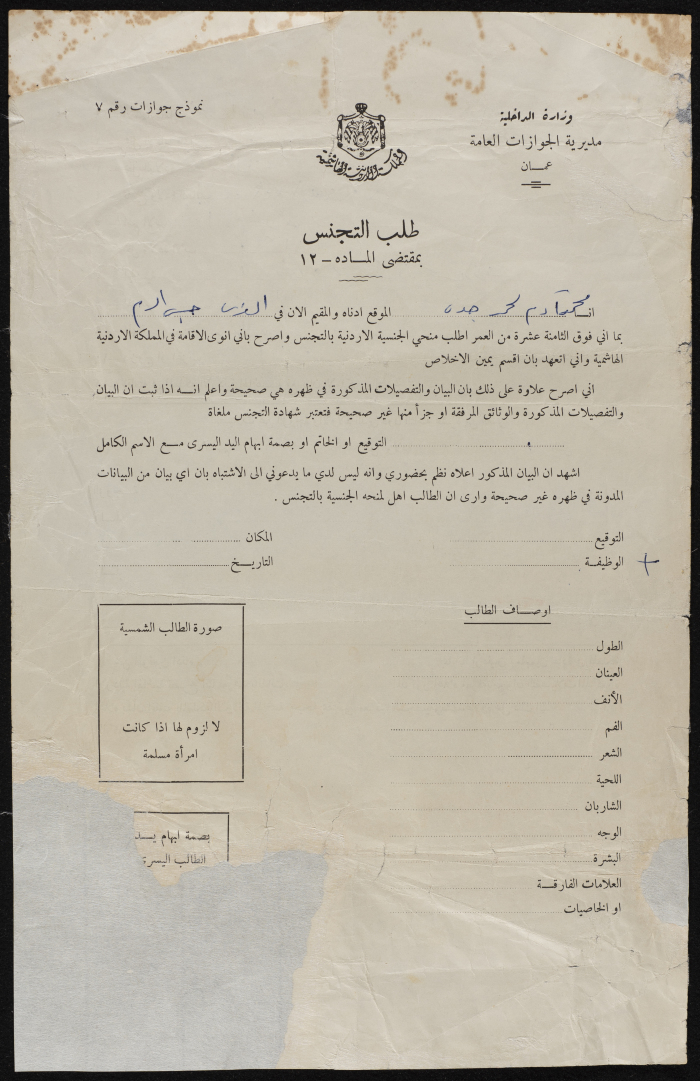 وزارة الداخلية
مديرية الجوازات العامة
عمـــان
نموذج جوازات رقم ٧
المملكة الاردنية الهاشمية
طلب التجنس
بمقتضى المــاده – ١٢
انــا محمد آدم جده الموقع ادناه والمقيم الان في القدس
بما اني فوق الثامنة عشرة من العمر اطلب منحي الجنسية الاردنية بالتجنس واصرح باني انوى الاقامة في المملكة الاردنية
الهاشمية واني اتعهد بان اقسم يمين الاخلاص
اني اصرح علاوة على ذلك بان البيان والتفصيلات المذكورة في ظهره هي صحيحة واعلم انــه اذا ثبت ان البيان
والتفصيلات المذكورة والوثائق المرفقة او جزأ منها غير صحيحة فتعتبر شهادة التجنس ملغاة
التوقيع او الخاتم او بصمة ابهام اليد اليسرى مــع الاسم الكامل
اشهد ان البيان المذكور اعلاه نظم بحضوري وانه ليس لدي ما يدعوني الى الاشتباه بان اي بيان من البيانات
المدونة في ظهره غير صحيحة وارى ان الطالب اهل لمنحه الجنسية بالتجنس .
التوقيع المكان
الوظيفــة التاريــخ
اوصــاف الطالب
صورة الطالب الشمسية
لا لزوم لها اذا كانت
امرأة مسلمة
الطول
العينان
الأنف
الفم
الشعر
اللحية
الشاربان
الوجه
البشرة
العلامات الفارقــة
او الخاصيات
بصمة ابهام يــد
الطالب اليسرى